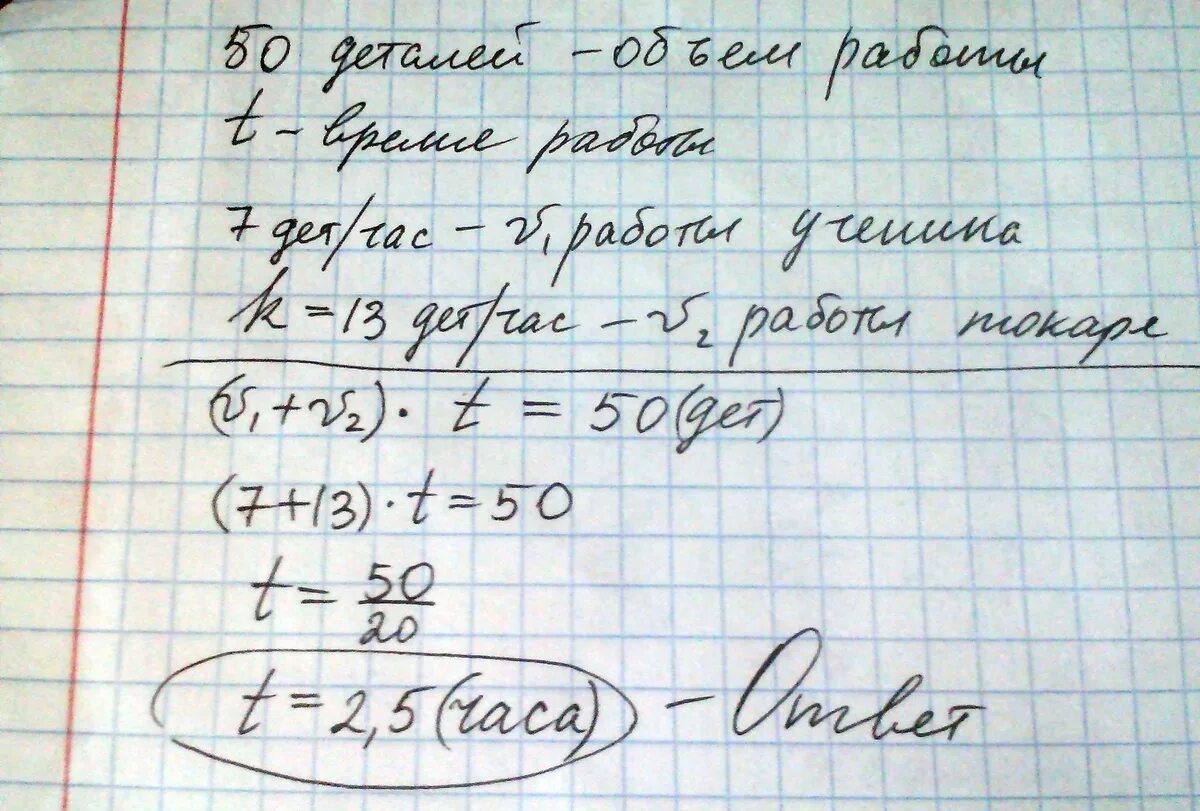 50 деталей - объем работы
t - время работы
7 дет/час - v₁ работы ученика
k = 13 дет/час - v₂ работы токаря
(v₁ + v₂) · t = 50 (дет)
(7+13) · t = 50
t = 50/20
t = 2,5 (часа) - Ответ